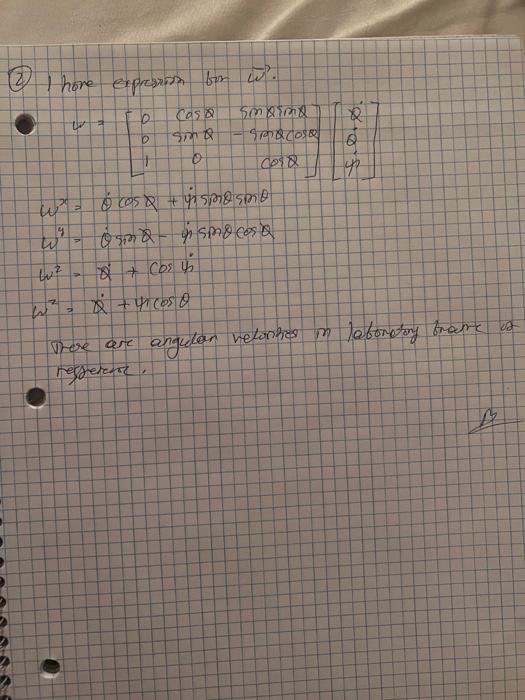 ② I have expression for ω⃗.
ω = [ 0 cosφ sinφsinθ ] [ φ̇ ]
[ 0 sinφ - sinθcosφ ] [ θ̇ ]
[ 1 0 cosθ ] [ ψ̇ ]
ωˣ = θ̇ cosφ + ψ̇ sinθ sinθ
ωʸ = θ̇ sinφ - ψ̇ sinθ cosφ
ω² = φ̇ + cos ψ̇
ω² = φ̇ + ψ cosθ
These are angular velocities in laboratory frame of
refference.